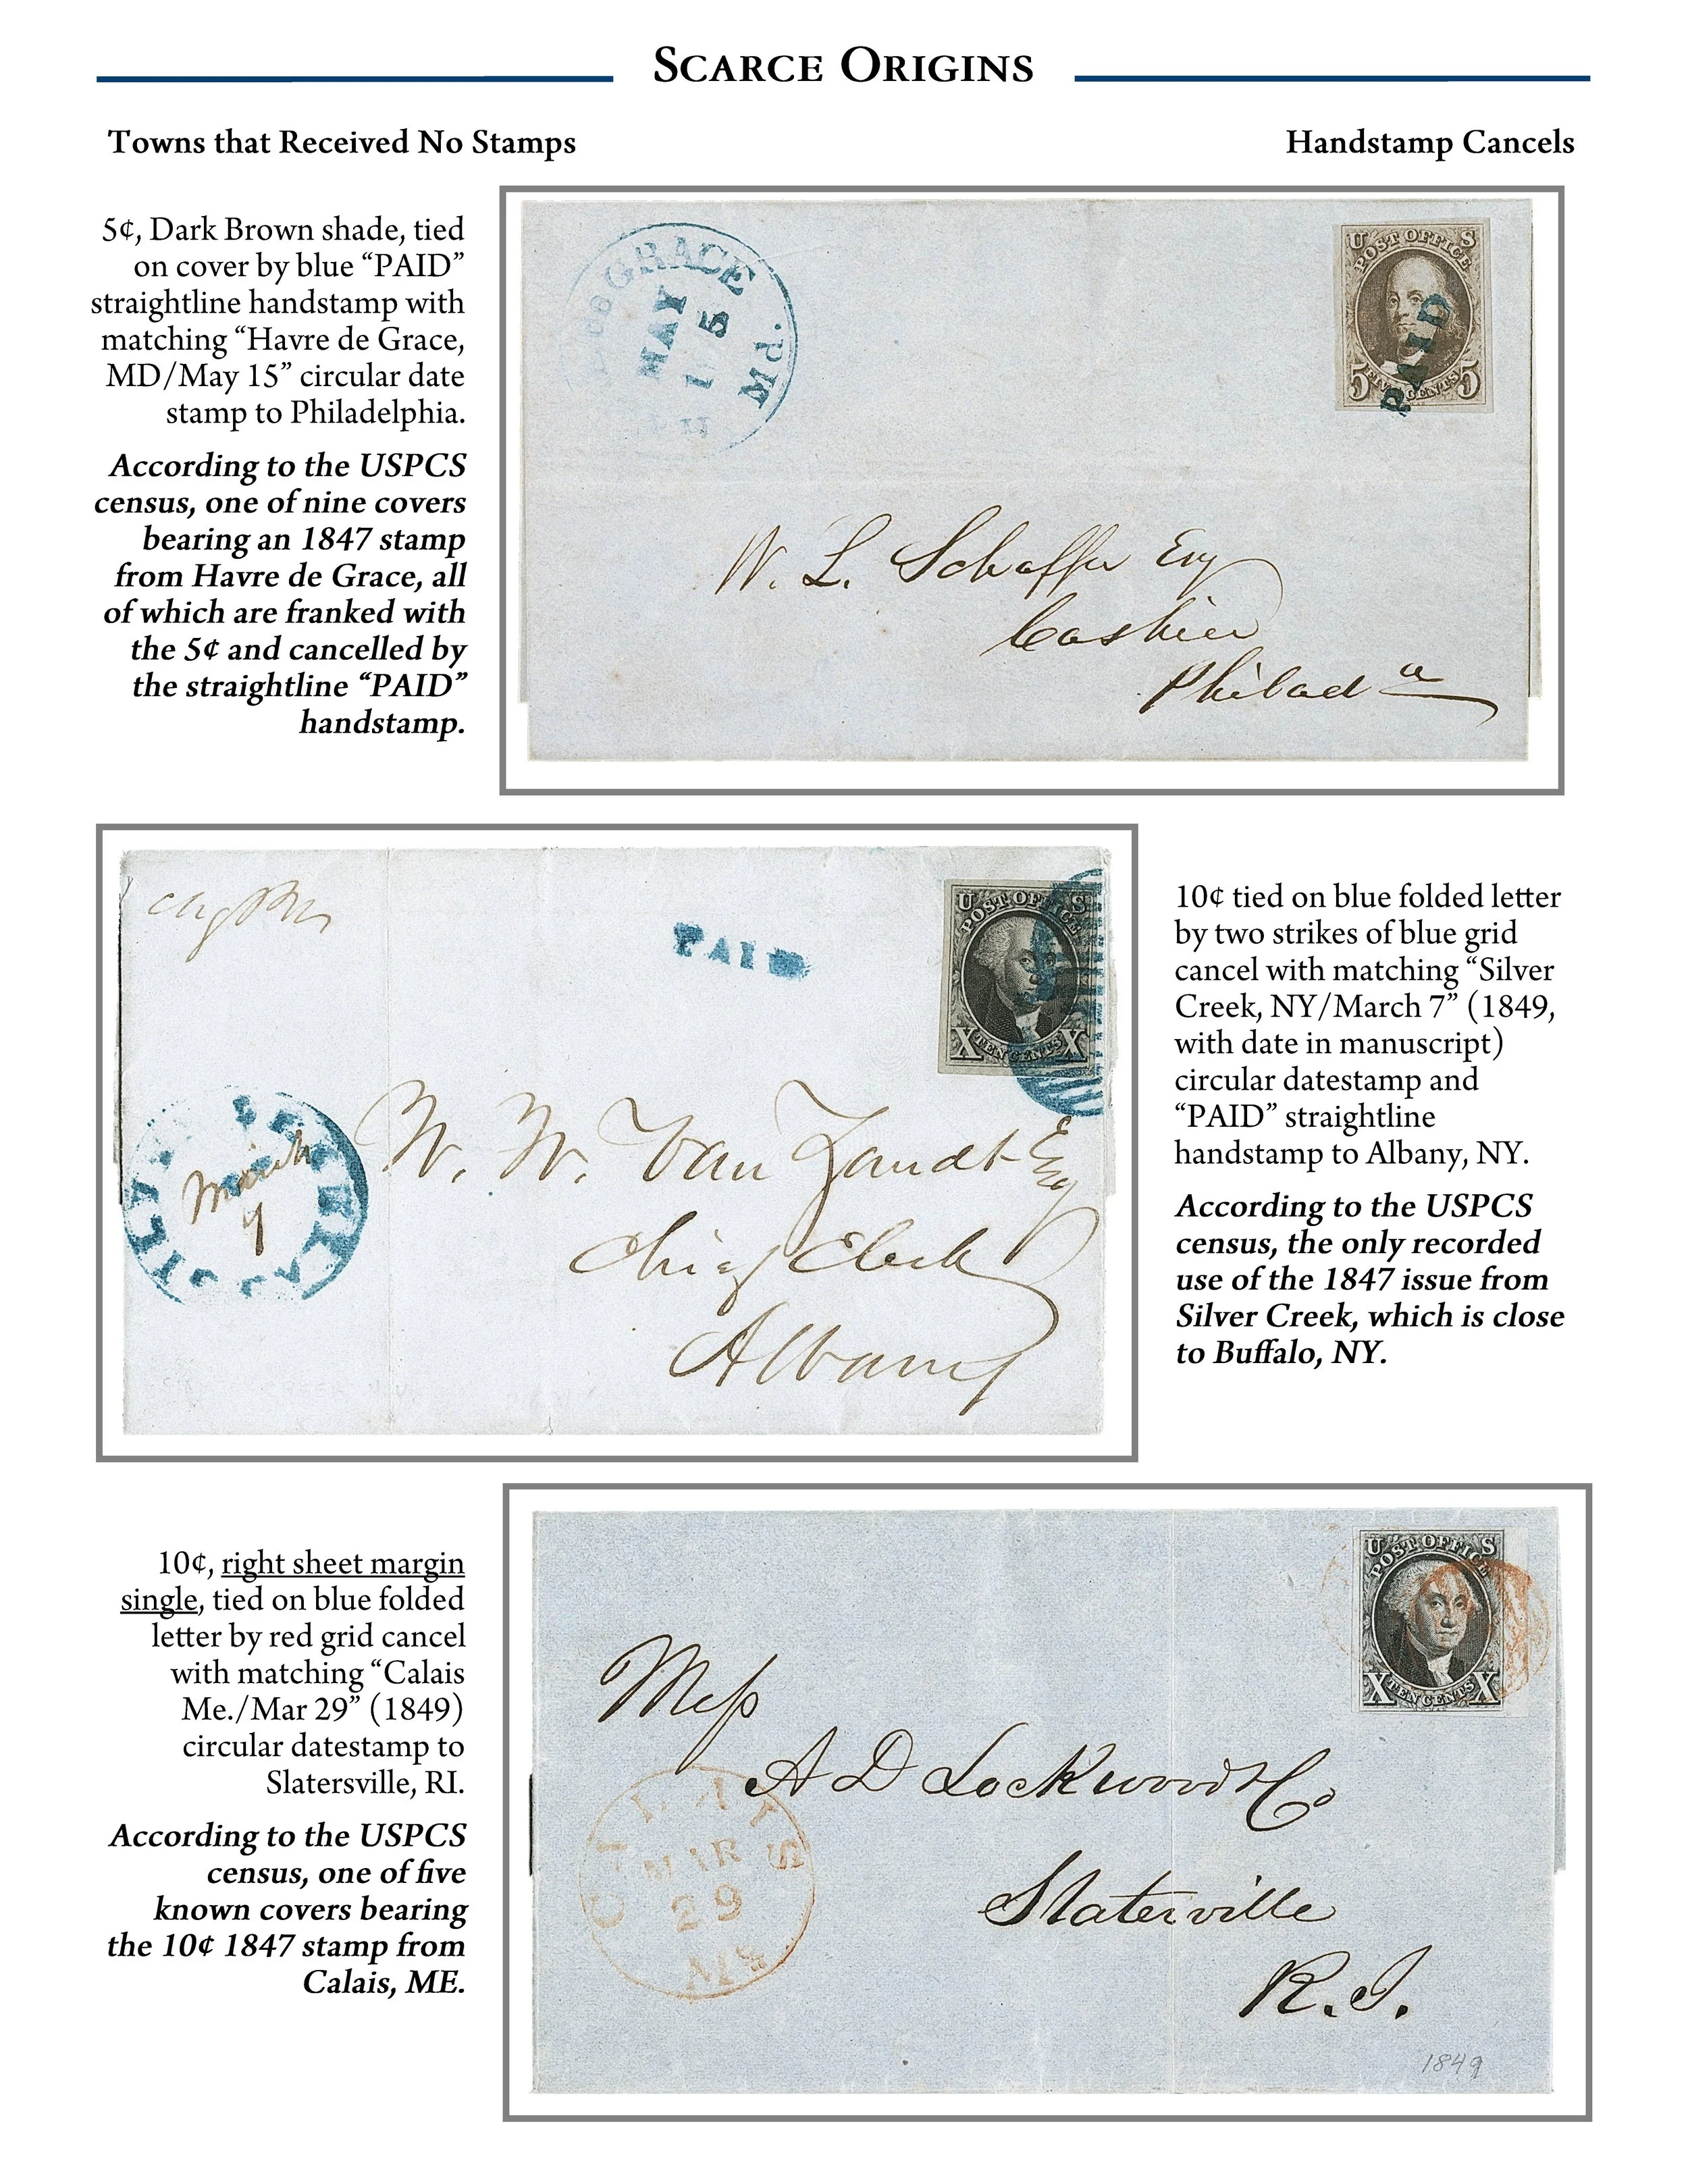 Scarce Origins
Towns that Received No Stamps
Handstamp Cancels
5¢, Dark Brown shade, tied
on cover by blue “PAID”
straightline handstamp with
matching “Havre de Grace,
MD/May 15” circular date
stamp to Philadelphia.
According to the USPCS
census, one of nine covers
bearing an 1847 stamp
from Havre de Grace, all
of which are franked with
the 5¢ and cancelled by
the straightline “PAID”
handstamp.
GRACE
MAY
15
U POST OFFICE S
PAID
5 FIVE CENTS 5
W. L. Schaffer Esq
Cashier
Philad a
PAID
U POST OFFICE S
X TEN CENTS X
March
7
W. W. Van Zandt Esq
Chief Clerk
Albany
10¢ tied on blue folded letter
by two strikes of blue grid
cancel with matching “Silver
Creek, NY/March 7” (1849,
with date in manuscript)
circular datestamp and
“PAID” straightline
handstamp to Albany, NY.
According to the USPCS
census, the only recorded
use of the 1847 issue from
Silver Creek, which is close
to Buffalo, NY.
10¢, right sheet margin
single, tied on blue folded
letter by red grid cancel
with matching “Calais
Me./Mar 29” (1849)
circular datestamp to
Slatersville, RI.
According to the USPCS
census, one of five
known covers bearing
the 10¢ 1847 stamp from
Calais, ME.
U POST OFFICE S
X TEN CENTS X
Mess
A D Lockwood & Co
Slaterville
R.I.
CALAIS
MAR
29
1849